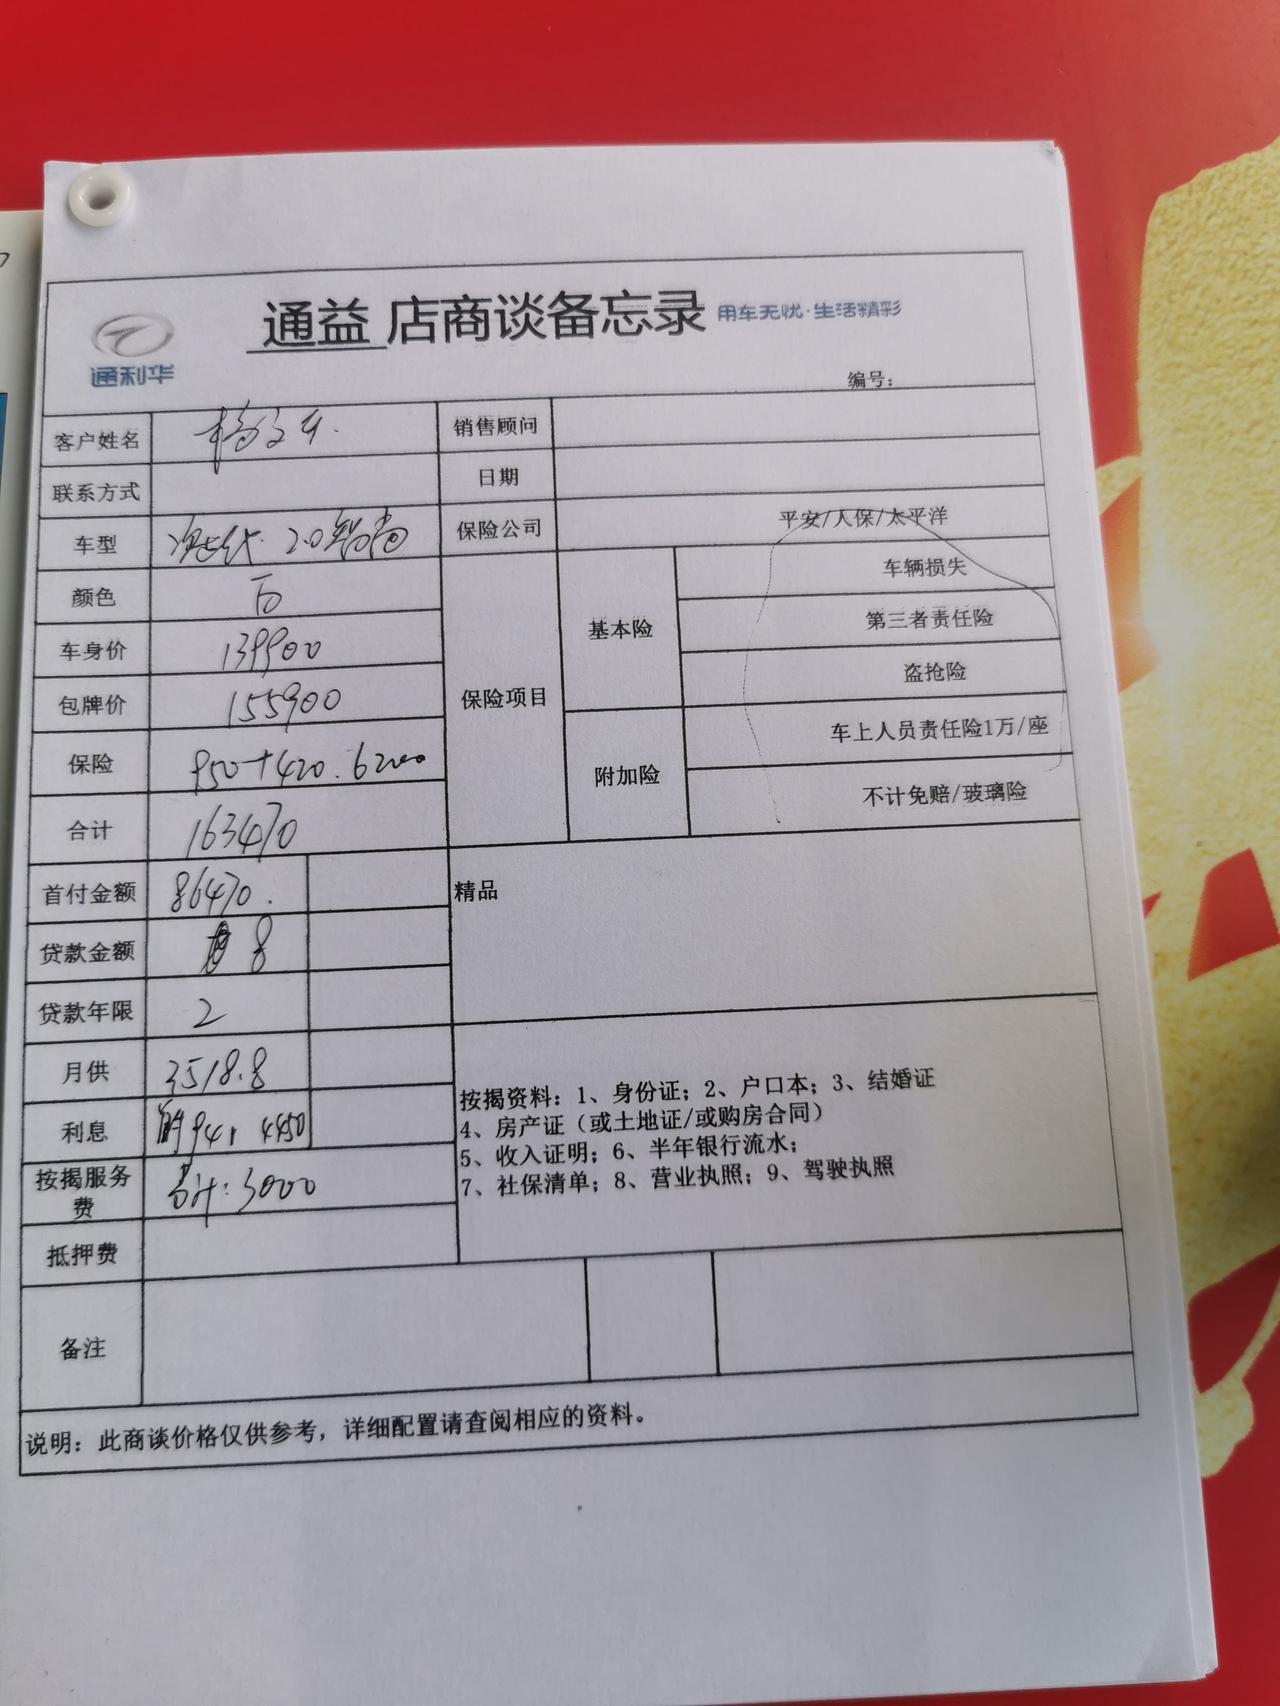 7
通利华
通益 店商谈备忘录 用车无忧·生活精彩
编号：
客户姓名 杨文 销售顾问
联系方式 日期
车型 2.0智尚 保险公司 平安/人保/太平洋
颜色 白
车身价 139900
包牌价 155900
保险 950+420.6200
合计 163470
保险项目
基本险
车辆损失
第三者责任险
盗抢险
附加险
车上人员责任险1万/座
不计免赔/玻璃险
首付金额 86470.
精品
贷款金额 8
贷款年限 2
月供 3518.8
利息 941 4450
按揭服务费 合计：3000
抵押费
按揭资料：1、身份证；2、户口本；3、结婚证
4、房产证（或土地证/或购房合同）
5、收入证明；6、半年银行流水；
7、社保清单；8、营业执照；9、驾驶执照
备注
说明：此商谈价格仅供参考，详细配置请查阅相应的资料。